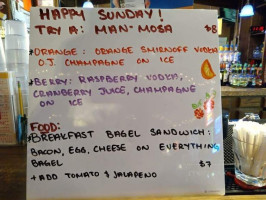 HAPPY SUNDAY!
TRY A: MAN-MOSA $8
*ORANGE: ORANGE SMIRNOFF VODKA
O.J. CHAMPAGNE ON ICE
*BERRY: RASPBERRY VODKA,
CRANBERRY JUICE, CHAMPAGNE
ON ICE
FOOD:
*BREAKFAST BAGEL SANDWICH:
BACON, EGG, CHEESE ON EVERYTHING
BAGEL $7
+ADD TOMATO $ JALAPENO